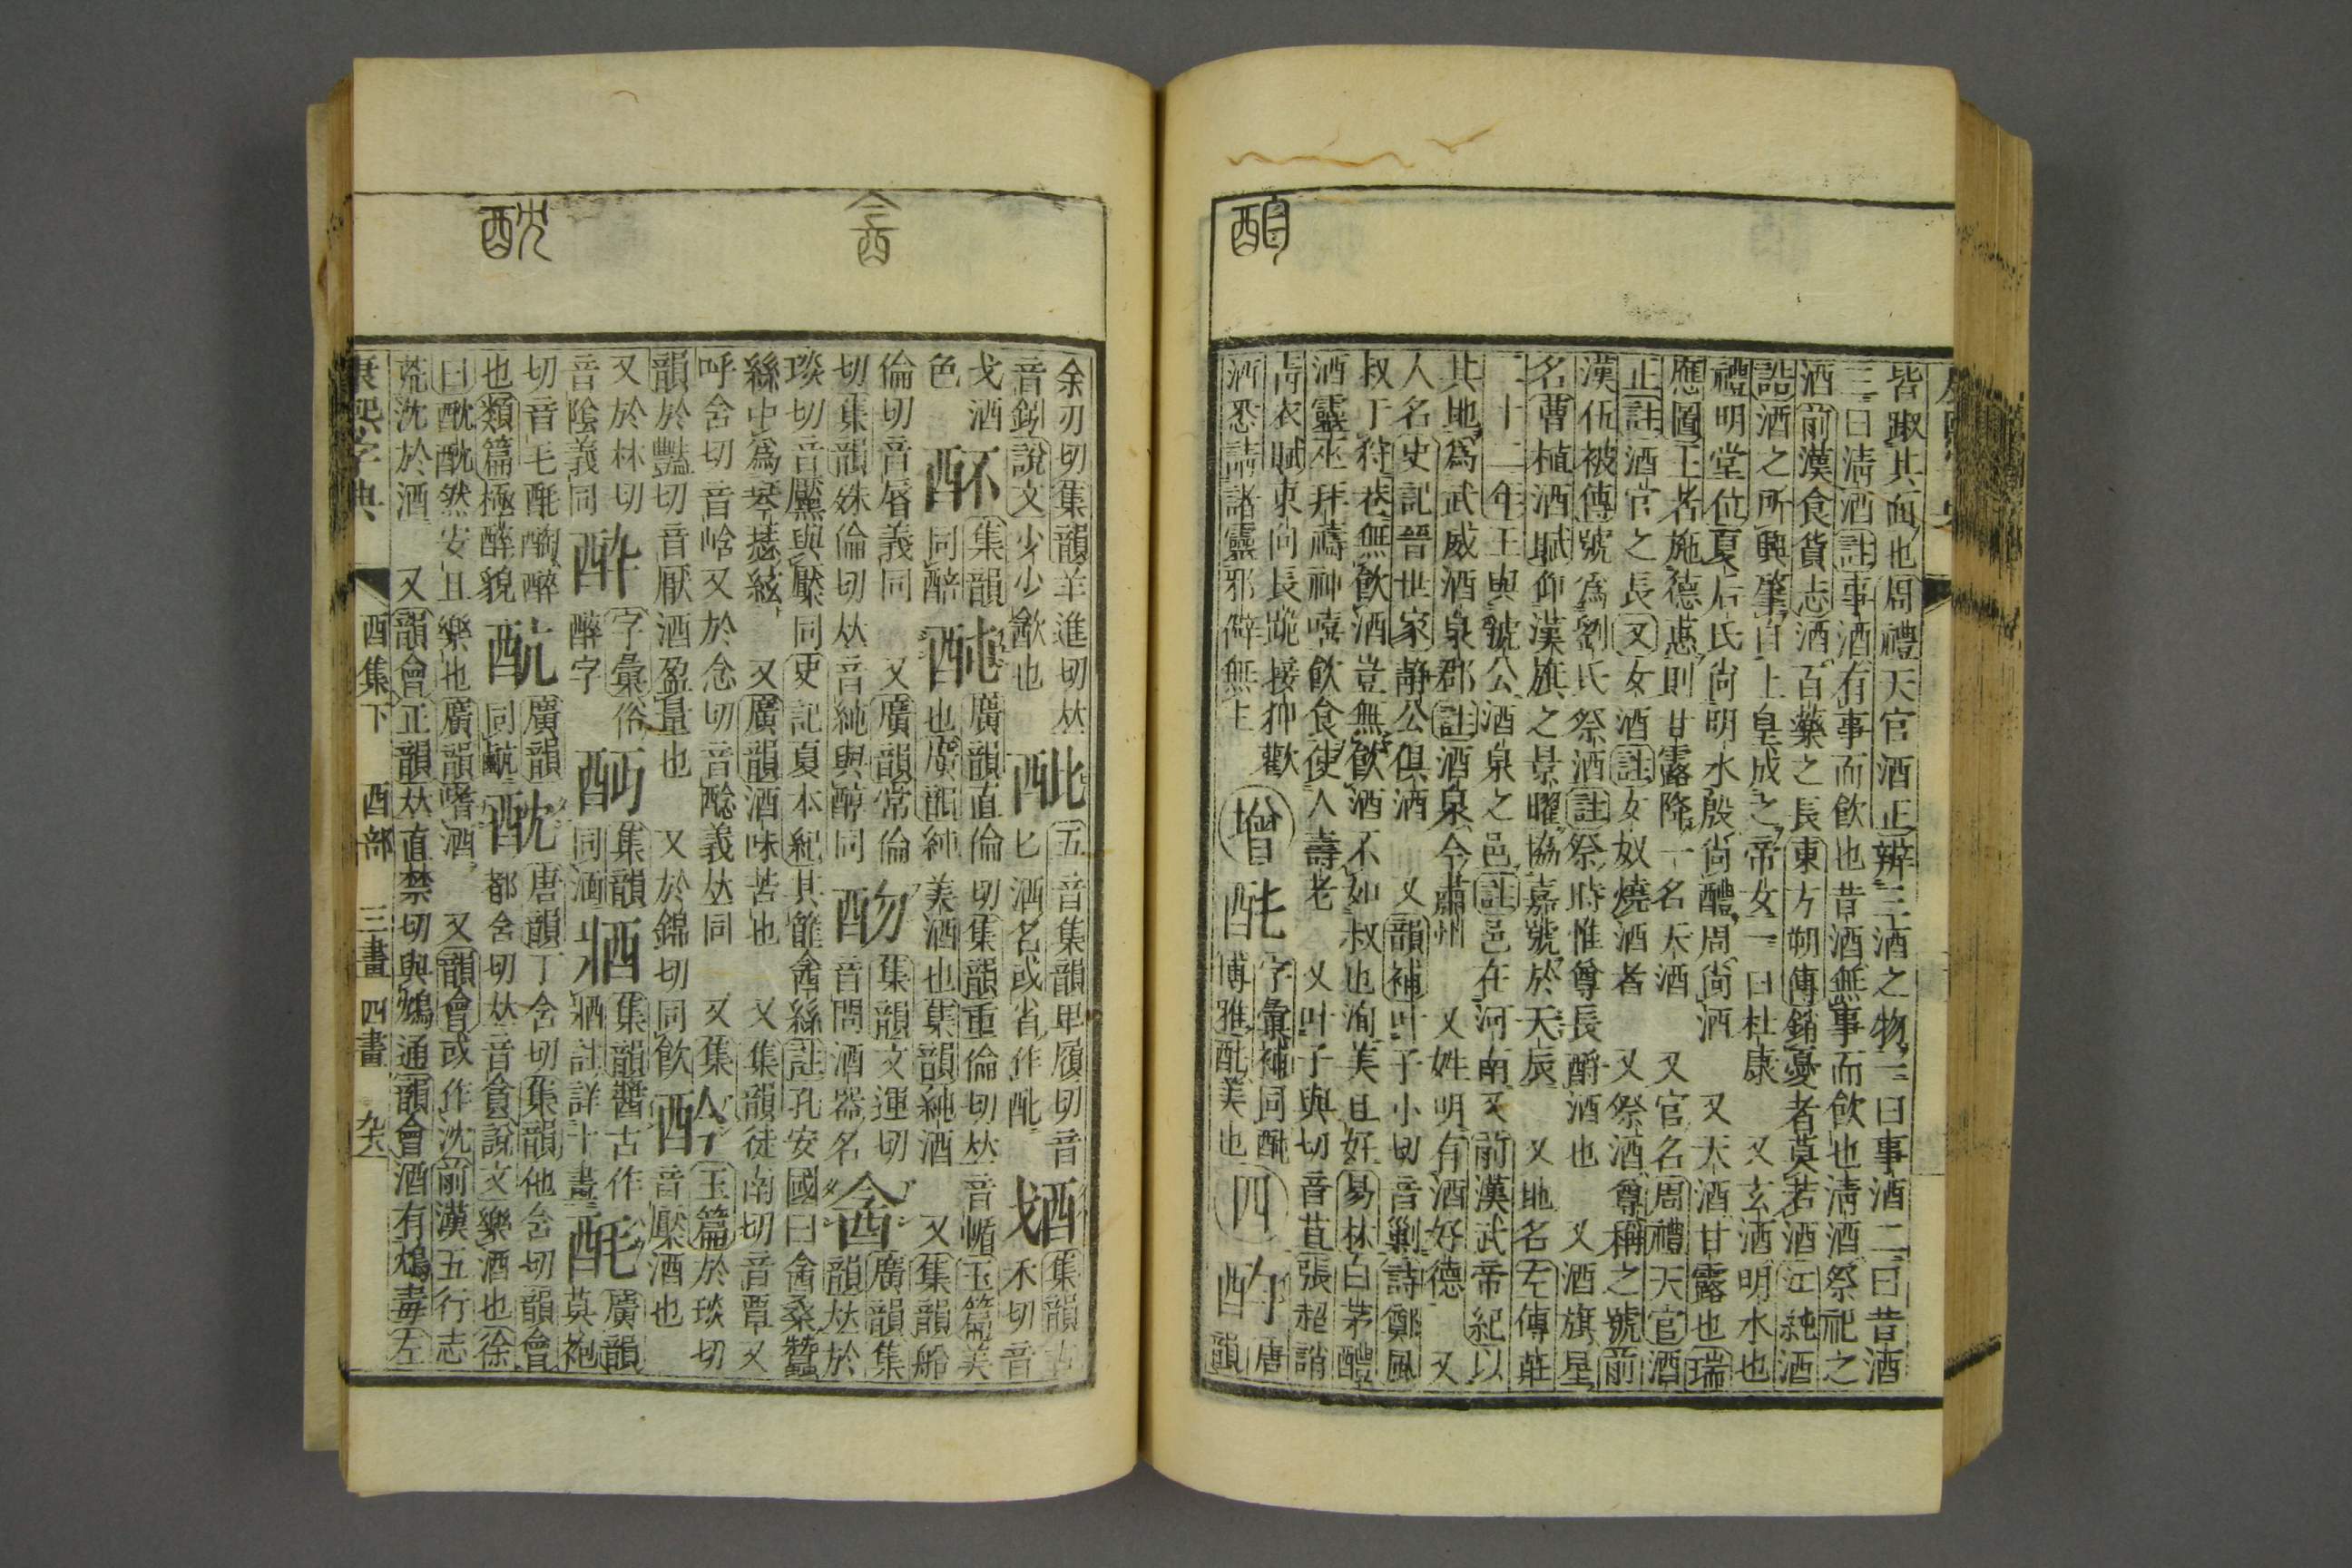 皆淑其面也周禮天官酒正辨三酒之物一曰事酒二曰昔酒
三曰淸酒註事酒有事而飮也昔酒無事而飮也淸酒祭祀之
酒前漢食貨志酒百藥之長東方朔傳銷憂者莫若酒江純酒
誥酒之所興肇自上皇成之帝女一曰杜康 又玄酒明水也
禮明堂位夏后氏尙明水殷尙醴周尙酒 又天酒甘露也瑞
應圖王者施德惠則甘露降一名天酒 又官名周禮天官酒
正註酒官之長又女酒註女奴燒酒者 又祭酒尊稱之號前
漢伍被傳號爲劉氏祭酒註祭時惟尊長酹酒也 又酒旗星
名曹植酒賦仰漢旗之景曜協嘉號於天辰 又地名左傳莊
二十二年王與虢公酒泉之邑註邑在河南又前漢武帝紀以
其地爲武威酒泉郡註酒泉今蕭州 又姓明有酒好德 又
人名史記晉世家靜公俱酒 又韻補叶子小切音剿詩鄭風
叔于狩巷無飮酒豈無飮酒不如叔也洵美且好易林白茅醴
酒靈巫拜禱神嗜飮食使人壽老 又叶子與切音苴張超誚
靑衣賦東向長跪接狎歡
酒悉請諸靈邪僻無主
增
酕
字彙補同酕
博雅酕美也
四
酌
唐
韻
余刃切集韻羊進切𠀤
音釰說文少少㱃也
酏
五音集韻卑履切音
匕酒名或省作酏
酒
集韻古
戈酒
色
禾切音
酛
集韻
同醅
酏
廣韻直倫切集韻重倫切𠀤音𨌺玉篇美
也廣韻純美酒也集韻純酒 又集韻船
倫切音脣義同 又廣韻常倫
切集韻姝倫切𠀤音純與醇同
酚
集韻文運切
音問酒器名
酓
廣韻集
韻𠀤於
琰切音黶與檿同史記夏本紀其篚酓絲註孔安國曰酓桑蠶
絲中爲琴瑟絃 又廣韻酒味苦也 又集韻徒南切音覃又
呼含切音峆又於念切音醶義𠀤同 又集
韻於豔切音厭酒盈量也 又於錦切同飮
酓
玉篇於琰切
音檿酒也
又於林切
音陰義同
酔
字彙俗
醉字
酾
集韻
同湎
酒
集韻醬古作
𤖅註詳十畫
酕
廣韻
莫袍
切音毛酕醄醉
也類篇極醉貌
酛
廣韻
同䣺
酖
唐韻丁含切集韻他含切韻會
都含切𠀤音貪說文樂酒也徐
曰酖酖然安且樂也廣韻嗜酒 又韻會或作沈前漢五行志
荒沈於酒 又韻會正韻𠀤直禁切與鴆通韻會酒有鴆毒左
康熙字典 酉集下 酉部 三畫 四畫